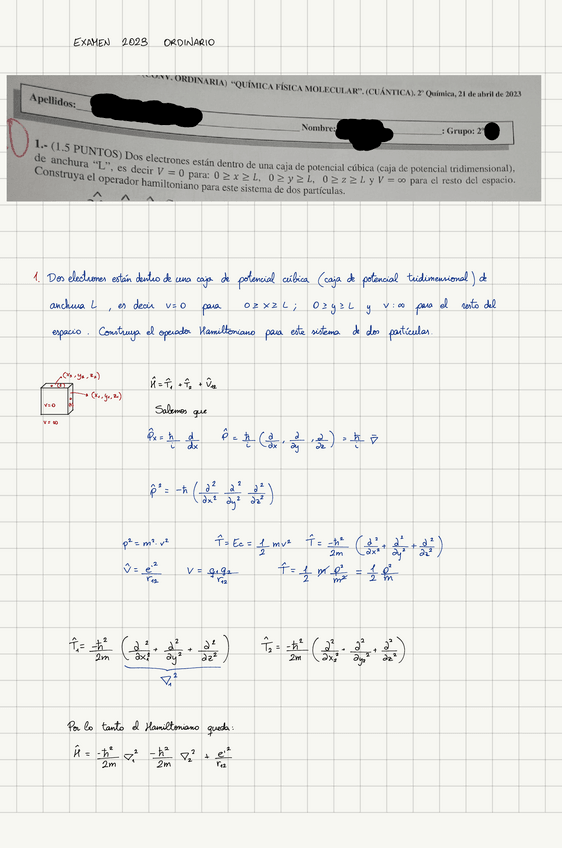 EXAMEN 2023 ORDINARIO
(CONV. ORDINARIA) “QUÍMICA FÍSICA MOLECULAR”. (CUÁNTICA). 2º Química, 21 de abril de 2023
Apellidos: Nombre: ; Grupo: 2º
1.- (1.5 PUNTOS) Dos electrones están dentro de una caja de potencial cúbica (caja de potencial tridimensional),
de anchura “L”, es decir V = 0 para: 0 ≥ x ≥ L, 0 ≥ y ≥ L, 0 ≥ z ≥ L y V = ∞ para el resto del espacio.
Construya el operador hamiltoniano para este sistema de dos partículas.
1. Dos electrones están dentro de una caja de potencial cúbica (caja de potencial tridimensional) de
anchura L, es decir v=0 para 0≥x≥L; 0≥y≥L y v:∞ para el resto del
espacio. Construya el operador Hamiltoniano para este sistema de dos partículas.
(x₂, y₂, z₂)
(x₁, y₁, z₁)
v=0
v=∞
Ĥ = T̂₁ + T̂₂ + V̂₁₂
Sabemos que
P̂x = ħ/i d/dx P̂ = ħ/i (∂/∂x, ∂/∂y, ∂/∂z) = ħ/i ∇̄
p̂² = -ħ (∂²/∂x² ∂²/∂y² ∂²/∂z²)
p² = m²·v² T̂ = Ec = 1/2 mv² T̂ = -ħ²/2m (∂²/∂x² + ∂²/∂y² + ∂²/∂z²)
V̂ = e'²/r₁₂ V = q₁q₂/r₁₂ T̂ = 1/2 m p²/m² = 1/2 p²/m
T̂₁ = -ħ²/2m (∂²/∂x₁² + ∂²/∂y² + ∂²/∂z²) T̂₂ = -ħ²/2m (∂²/∂x₂² + ∂²/∂y₂² + ∂²/∂z²)
∇₁²
Por lo tanto el Hamiltoniano queda:
Ĥ = -ħ²/2m ∇₁² -ħ²/2m ∇₂² + e'²/r₁₂